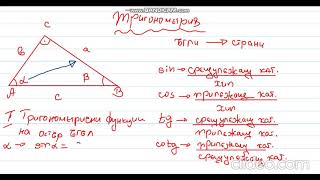 Тригонометрия
C
ъгли → страни
b
a
sin → срещулежащ кат.
хип
α
β
A
c
B
cos → прилежащ кат.
хип
T Тригонометриски функции
tg → срещулежащ кат.
прилежащ кат.
на остър ъгъл
α → sinα =
cotg → прилежащ кат.
срещулежащ кат.